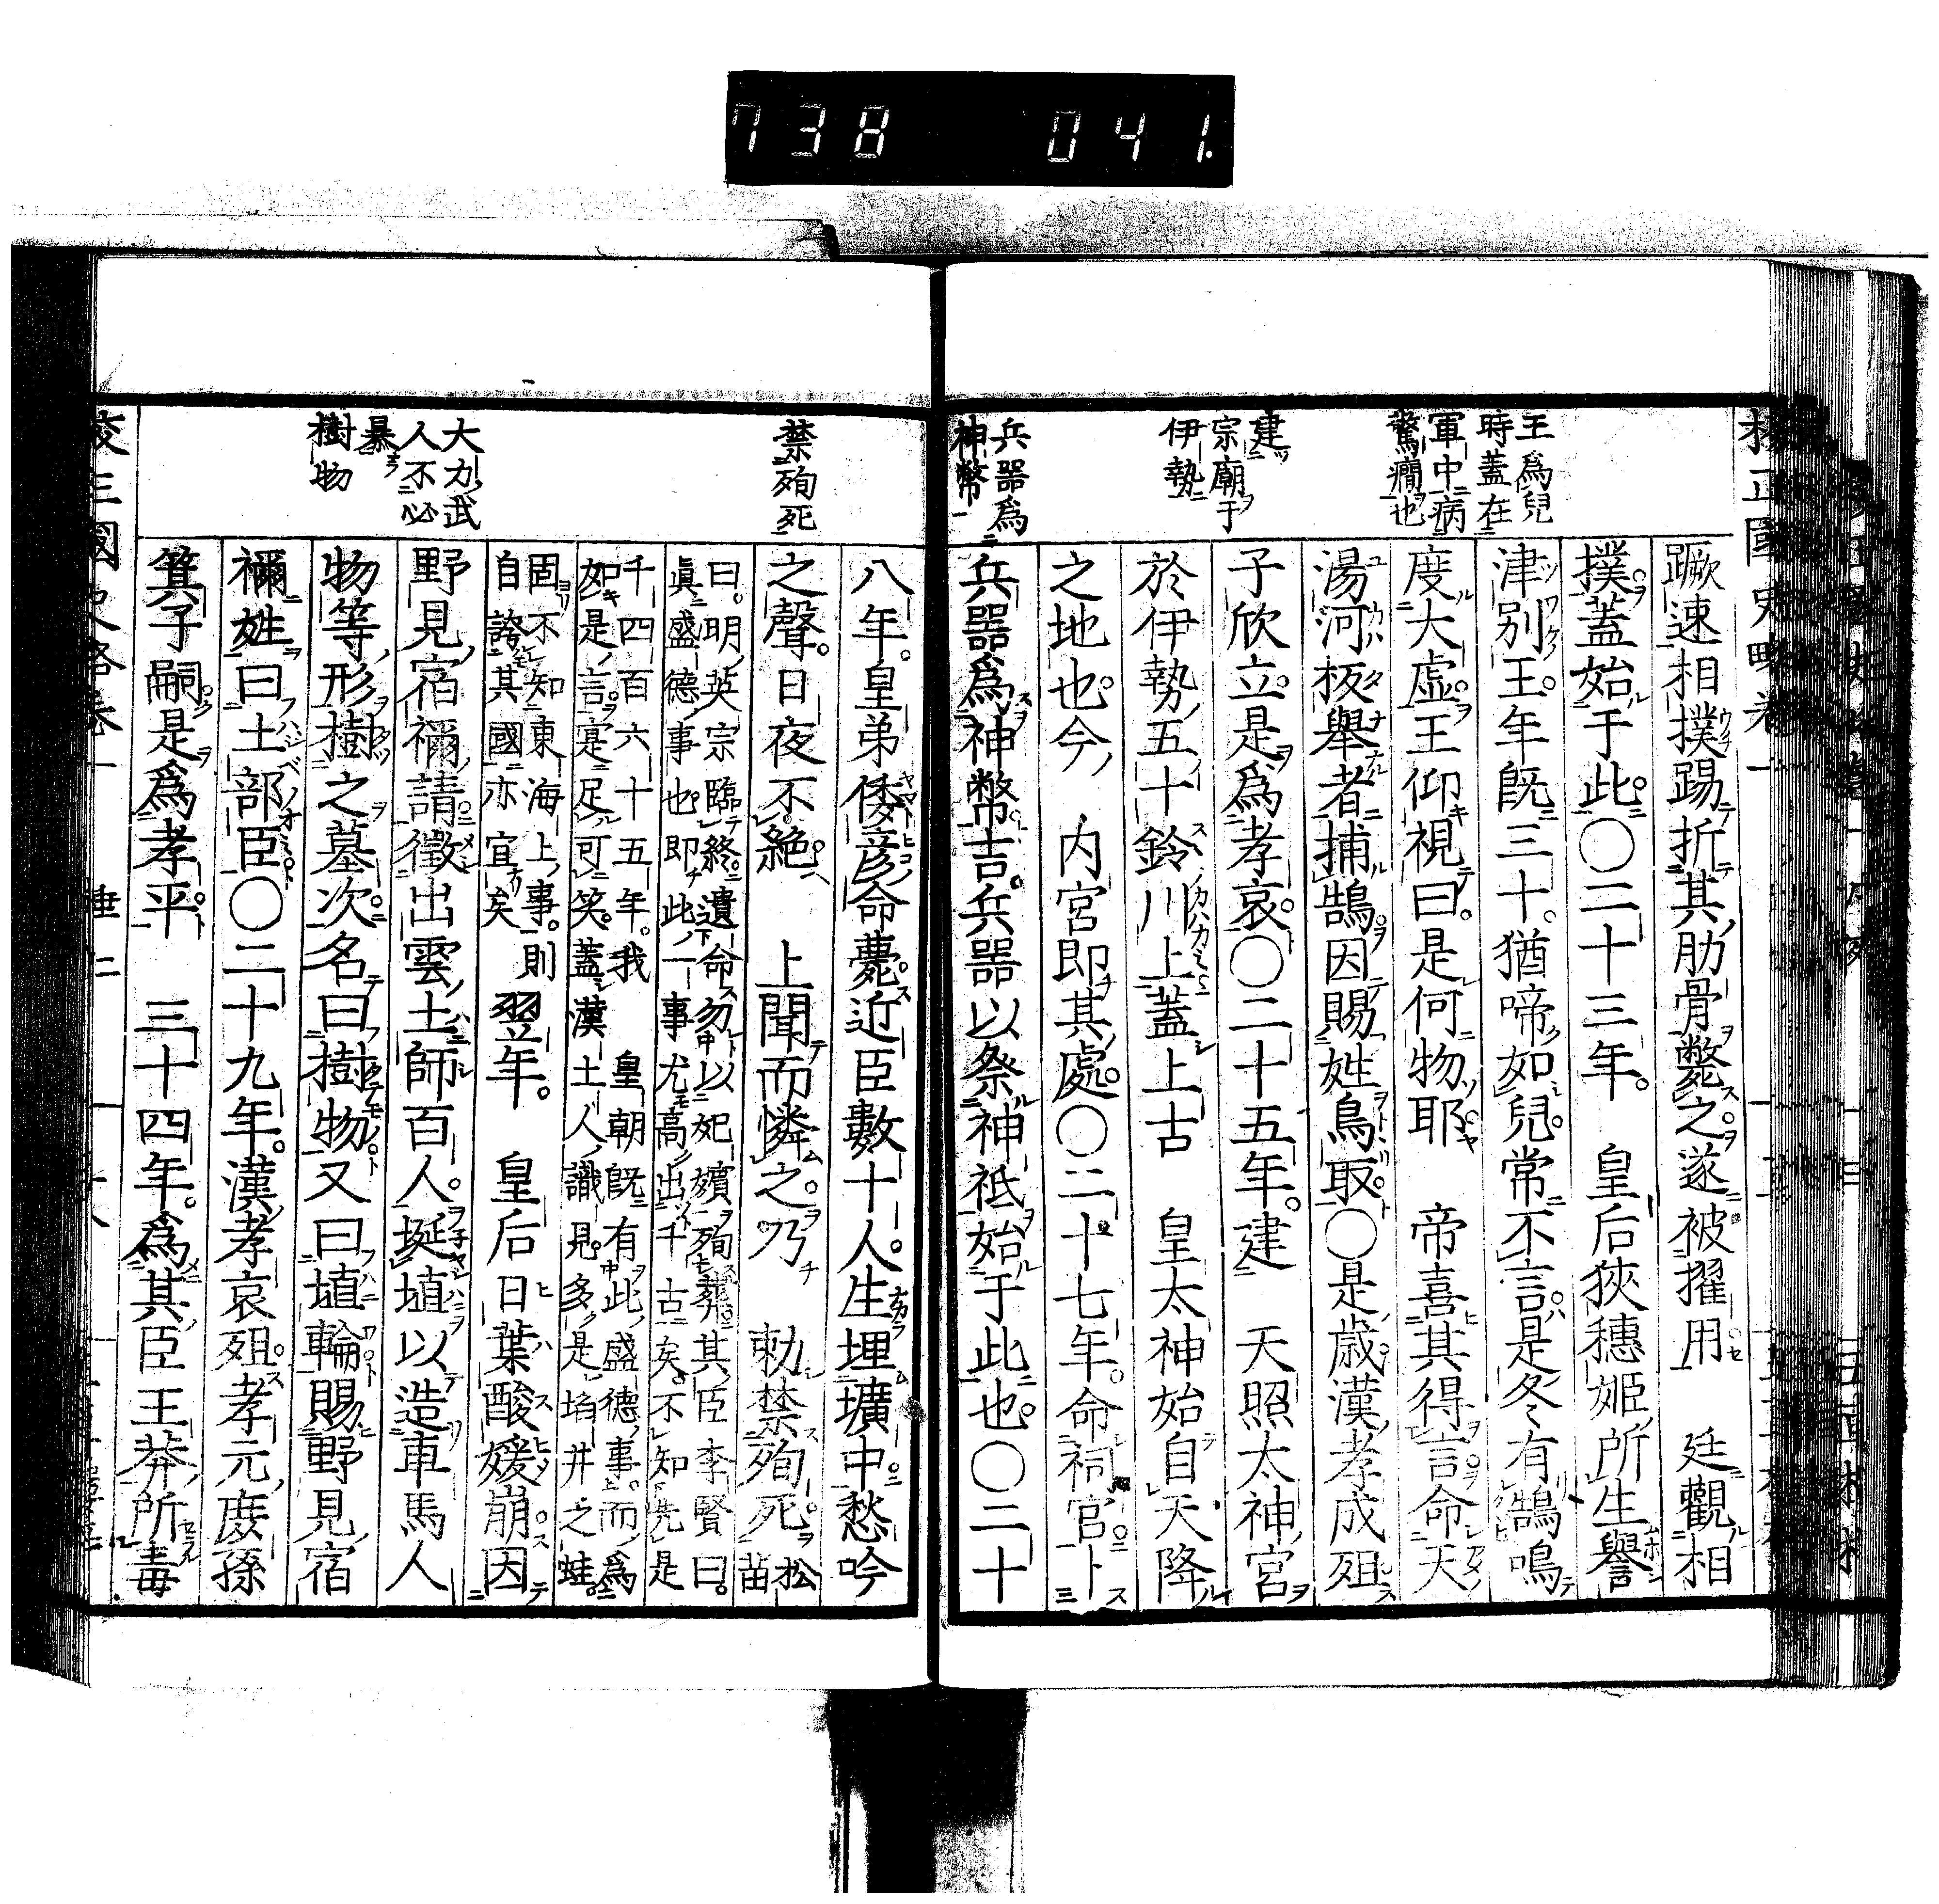 738 041.
王爲兒
時蓋在
軍中病
驚癇也
建
宗廟于
伊勢
兵器爲
神幣
蹶速相撲踢折其肋骨斃之遂被擢用　廷觀相
撲蓋始于此〇二十三年。　皇后狹穗姬所生譽
津別王。年既三十。猶啼如兒。常不言。是冬有鵠鳴
度大虛。王仰視曰。是何物耶　帝喜其得言命天
湯河板舉者捕鵠。因賜姓鳥取〇是歲漢孝成殂
子欣立。是爲孝哀〇二十五年。建　天照太神宮
於伊勢五十鈴川上。蓋上古　皇太神始自天降
之地也。今　内宮即其處〇二十七年。命祠官卜
兵器爲神幣吉。兵器以祭神祇始于此也。〇二十
禁殉死
大力武
人不必
暴
樹物
八年。皇弟倭彥命薨。近臣數十人。生埋壙中。愁吟
之聲。日夜不絶　上聞而憐之。乃　勅禁殉死 松苗
曰。明英宗臨終遺命勿以妃嬪殉葬其臣李賢曰。
眞盛德事也即此一事尤高出千古矣。不知先是
千四百六十五年。我　皇朝既有此盛德事。而爲
如是言寔足可笑。蓋漢土人識見多是埳井之蛙。
固不知東海上事。則
自誇其國亦宜矣
翌年。　皇后日葉酸媛崩。因
野見宿禰請徵出雲土師百人。埏埴以造車馬人
物等形樹之墓次。名曰樹物又曰埴輪賜野見宿
禰姓曰土部臣〇二十九年。漢孝哀殂。孝元庶孫
箕子嗣。是爲孝平　三十四年。爲其臣王莽所毒